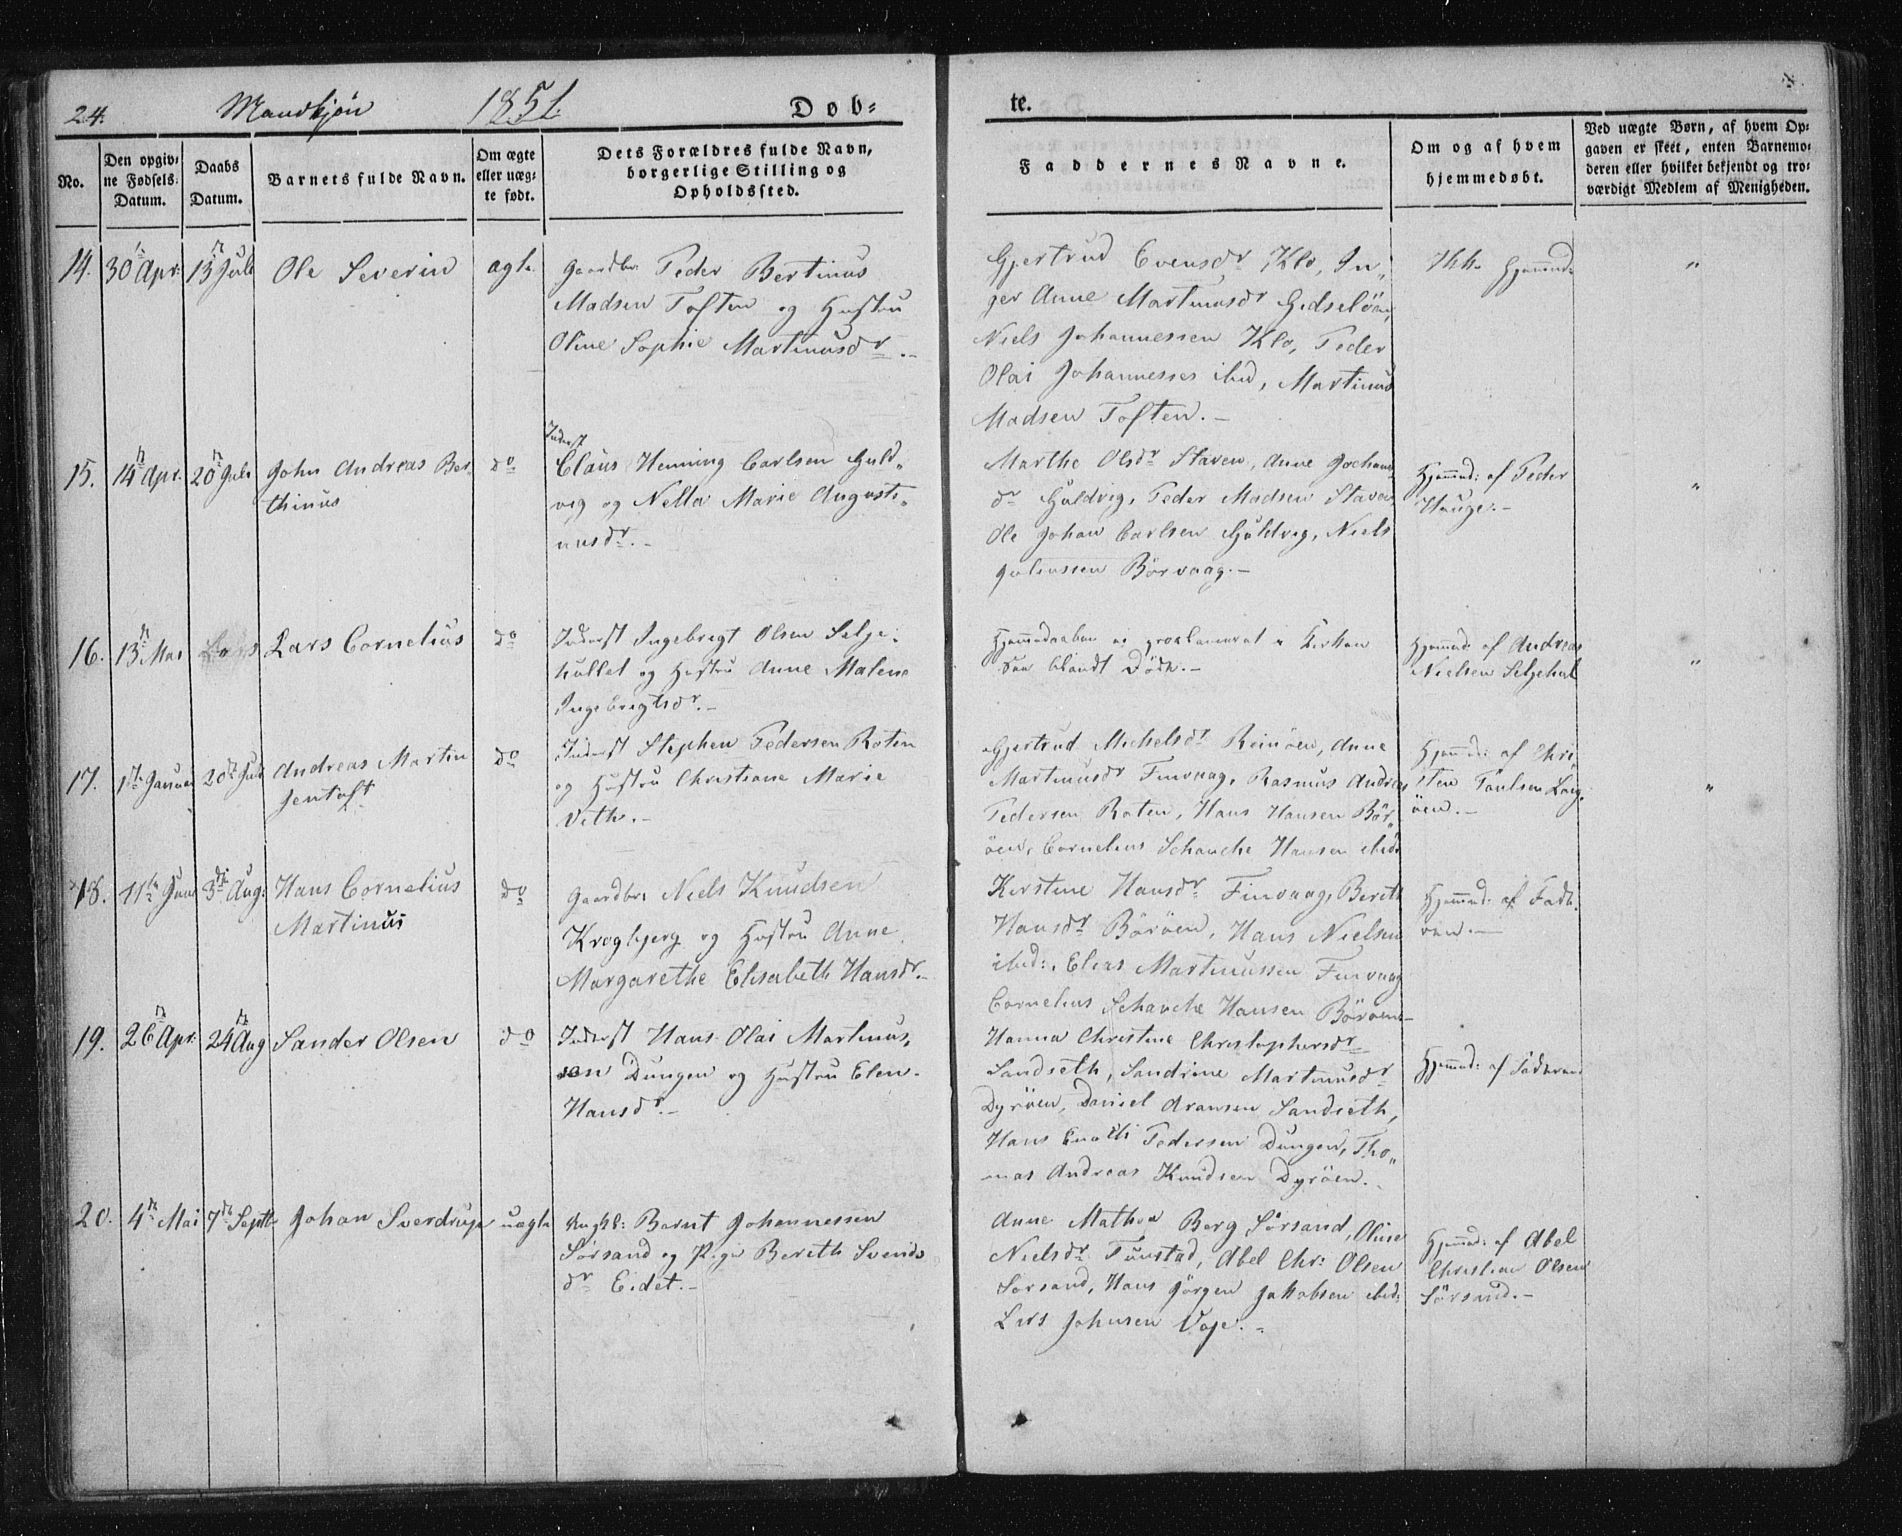 24. Mandkjøn 1851. Døb-
te.
No.
Den opgiv-
ne Fødsels-
Datum.
Daabs
Datum.
Barnets fulde Navn.
Om ægte
eller uæg-
te født.
Dets Forældres fulde Navn,
borgerlige Stilling og
Opholdssted.
Faddernes Navne.
Om og af hvem
hjemmedøbt.
Ved uægte Børn, af hvem Op-
gaven er skeet, enten Barnemo-
deren eller hvilket bekjendt og tro-
værdigt Medlem af Menigheden.
14. 30 Apr: 13 Juli Ole Severin ægte
Gaardbr: Peder Bertinus
Madsen Toften og Hustru
Oline Sophie Martinusdr.-
Gjertrud Evensdr Klo, In-
ger Anne Martinusdr Gidselöen,
Niels Johannessen Klo, Peder
Olai Johannesses ibid, Martinus
Madsen Toften.-
Ikke Hjemmd:
"
15. 14 Apr. 20 Juli John Andreas Ber-
thinus
do
Inderst
Claus Henning Carlsen Guld-
vig og Nella Marie Augusti-
nusdr.-
Marthe Olsdr Staven, Anne Jochums-
dr Guldvig, Peder Madsen Staven
Ole Johan Carlsen Guldvig, Niels
Juliussen Börvaag.-
Hjemmd: af Peder
Hauge.-
"
16. 13 Mai Lars Cornelius do
Inderst Ingebrigt Olsen Selje-
hullet og Hustru Anne Malene
Ingebrigtsdr.-
Hjemmedaaben er proclameret i Kirken
saa blandt Døde.-
Hjemmd: af Andreas
Nielsen Seljehul
"
17. 1ste Januar 20de Juli Andreas Martin
Jentoft
do
Inderst Stephen Pedersen Roten
og Hustru Christiane Marie
Veth.-
Gjertrud Michelsdr Reinöen, Anne
Martinusdr Finvaag, Rasmus Andreas
Pedersen Roten, Hans Hansen Bör-
öen, Cornelius Schanche Hansen ibid
Hjemmd: af Chri-
sten Paulsen Lang-
öen.-
"
18. 11te Juni 3die Aug: Hans Cornelius
Martinus
do
Gaardbr: Niels Knudsen
Kragbjerg og Hustru Anne
Margarethe Elisabeth Hansdr.-
Kirstine Hansdr Finvaag, Bereth
Hansdr Böröen, Hans Nielsen
ibid:, Elias Martinussen Finvaag
Cornelius Schanche Hansen Böröen-
Hjemmd: af Fade-
ren.-
19. 26 Apr: 24 Aug Sander Olsen do
Inderst Hans Olai Martinus-
sen Dungen og Hustru Elen
Hansdr.-
Hanna Christine Christophersdr
Sandseth, Sandrine Martinusdr
Dyröen, Daniel Aronsen Sandseth,
Hans Enok Pedersen Dungen, Tho-
mas Andreas Knudsen Dyröen.-
Hjemmd: af Faderen
20. 4 Mai 7de Septbr Johan Sverdrup uægte
Ungkl: Bernt Johannessen
Sörsand og Pige Bereth Svends
dr Eidet.-
Anne Mathea Berg Sörsand, Oline
Nielsdr Tunstad, Abel Chr: Olsen
Sörsand, Hans Jörgen Jakobsen ibid:
Lars Johnsen Vaje.-
Hjemmd: af Abel
Christian Olsen
Sörsand.-